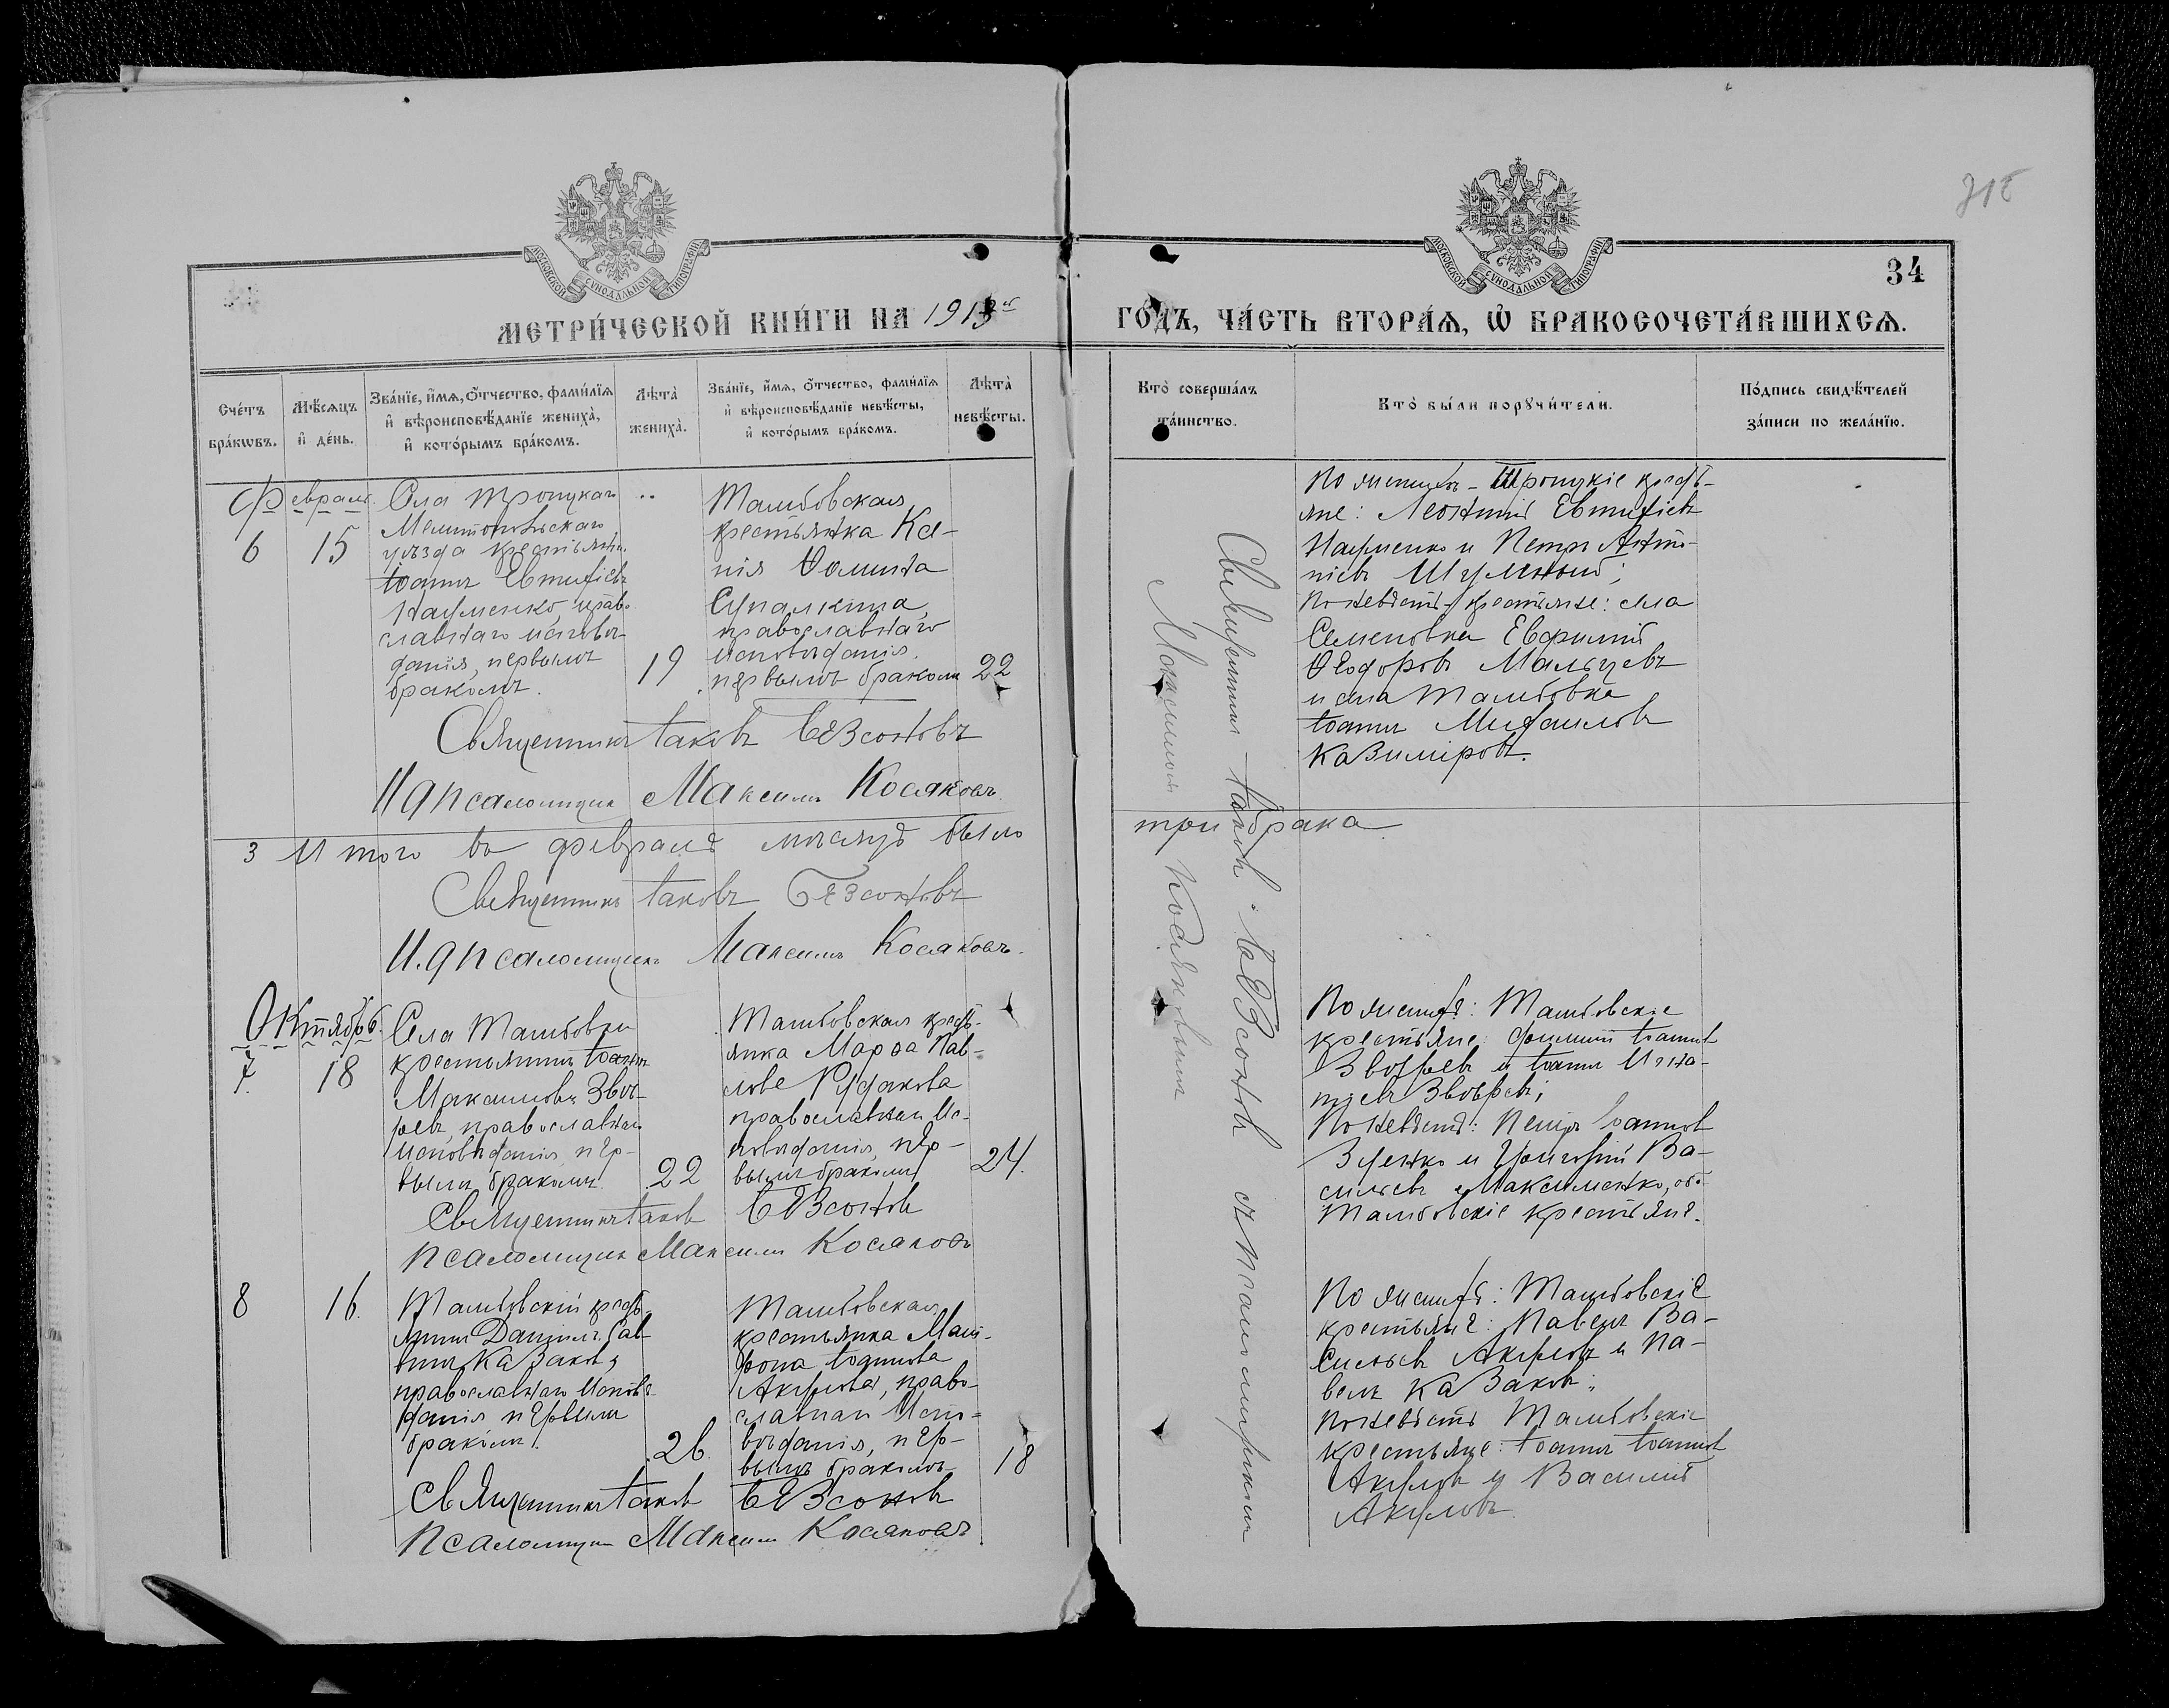 315
34
МОСКОВСКОЙ СѴНОДАЛЬНОЙ ТИПОГРАФІИ
МОСКОВСКОЙ СѴНОДАЛЬНОЙ ТИПОГРАФІИ
МЕТРИ́ЧЕСКОЙ КНИ́ГИ НА 1913й ГО́ДЪ, ЧА́СТЬ ВТОРА́Ѧ, Ѡ БРАКОСОЧЕТА́ВШИХСѦ.
Сче́тъ бра́кѡвъ.
Мѣ́сѧцъ и҆ де́нь.
Зва́нїе, и҆́мѧ, ѻ҆́тчество, фами́лїѧ и҆ вѣроисповѣ́данїе жениха̀, и҆ кото́рымъ бра́комъ.
Лѣ́та жениха̀.
Зва́нїе, и҆́мѧ, ѻ҆́тчество, фами́лїѧ и҆ вѣроисповѣ́данїе невѣ́сты, и҆ кото́рымъ бра́комъ.
Лѣ́та невѣ́сты.
Кто̀ соверша́лъ та́инство.
Кто̀ бы́ли порꙋчи́тели.
По́дпись свидѣ́телей за́писи по жела́нїю.
Февраль
6
15
Села Троицкаго
Мелитопольскаго
уѣзда крестьянинъ
Іоаннъ Евтихіевъ
Науменко, право-
славнаго исповѣ-
данія, первымъ
бракомъ.
19
Тамбовская
крестьянка Ксе-
нія Ѳомина
Супалкина,
православнаго
исповѣданія,
первымъ бракомъ
22
По женихѣ - Троицкіе кресть-
яне: Леонтій Евтихіевъ
Науменко и Петръ Анто-
ніевъ Шуменный;
По невѣстѣ крестьяне: села
Семеновки Евфимій
Ѳеодоровъ Мальцевъ
и села Тамбовки
Іоаннъ Михаиловъ
Казиміровъ.
Священникъ Іаковъ Безсоновъ
И д псаломщика Максимъ Косяковъ.
3 Итого въ февралѣ мѣсяцѣ было три брака
Священникъ Іаковъ Безсоновъ
И. д псаломщика Максимъ Косяковъ.
Священникъ Іаковъ Безсоновъ съ псаломщикомъ
Максимомъ Косяковымъ
Октябрь.
7.
18
Села Тамбовки
крестьянинъ Іоаннъ
Максимовъ Звѣ-
ревъ, православнаго
исповѣданія, пер-
вымъ бракомъ
22
Тамбовская кресть-
янка Марѳа Пав-
лова Рудакова
православнаго ис-
повѣданія, пер-
вымъ бракомъ
24.
По женихѣ: Тамбовскіе
крестьяне: Филиппъ Іоанновъ
Звѣревъ и Іоаннъ Игна-
тіевъ Звѣревъ;
По невѣстѣ: Петръ Іоанновъ
Зуенко и Григорій Ва-
сильевъ Максименко, оба
Тамбовскіе крестьяне.
Священникъ Іаковъ Безсоновъ
Псаломщикъ Максимъ Косяковъ
8
16.
Тамбовскій кресть-
янинъ Даніилъ Сав-
винъ Казаковъ,
православнаго исповѣ-
данія первымъ
бракомъ.
26
Тамбовская
крестьянка Мат-
рона Іоаннова
Акулова, право-
славнаго испо-
вѣданія, пер-
вымъ бракомъ
18
По женихѣ: Тамбовскіе
крестьяне: Павелъ Ва-
сильевъ Акуловъ и Па-
велъ Казаковъ;
По невѣстѣ Тамбовскіе
крестьяне: Іоаннъ Іоанновъ
Акуловъ и Василій
Акуловъ.
Священникъ Іаковъ Безсоновъ
Псаломщикъ Максимъ Косяковъ